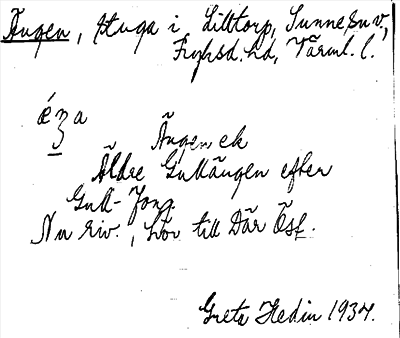 Ängen, stuga i Lilltorp, Sunne sn v,
Fryksd. hd, Värml. l.
Ängen ek
Äldre Gullängen efter
Gull-Jong.
Nu riv., hör till Där Öst.
Greta Hedin 1934.